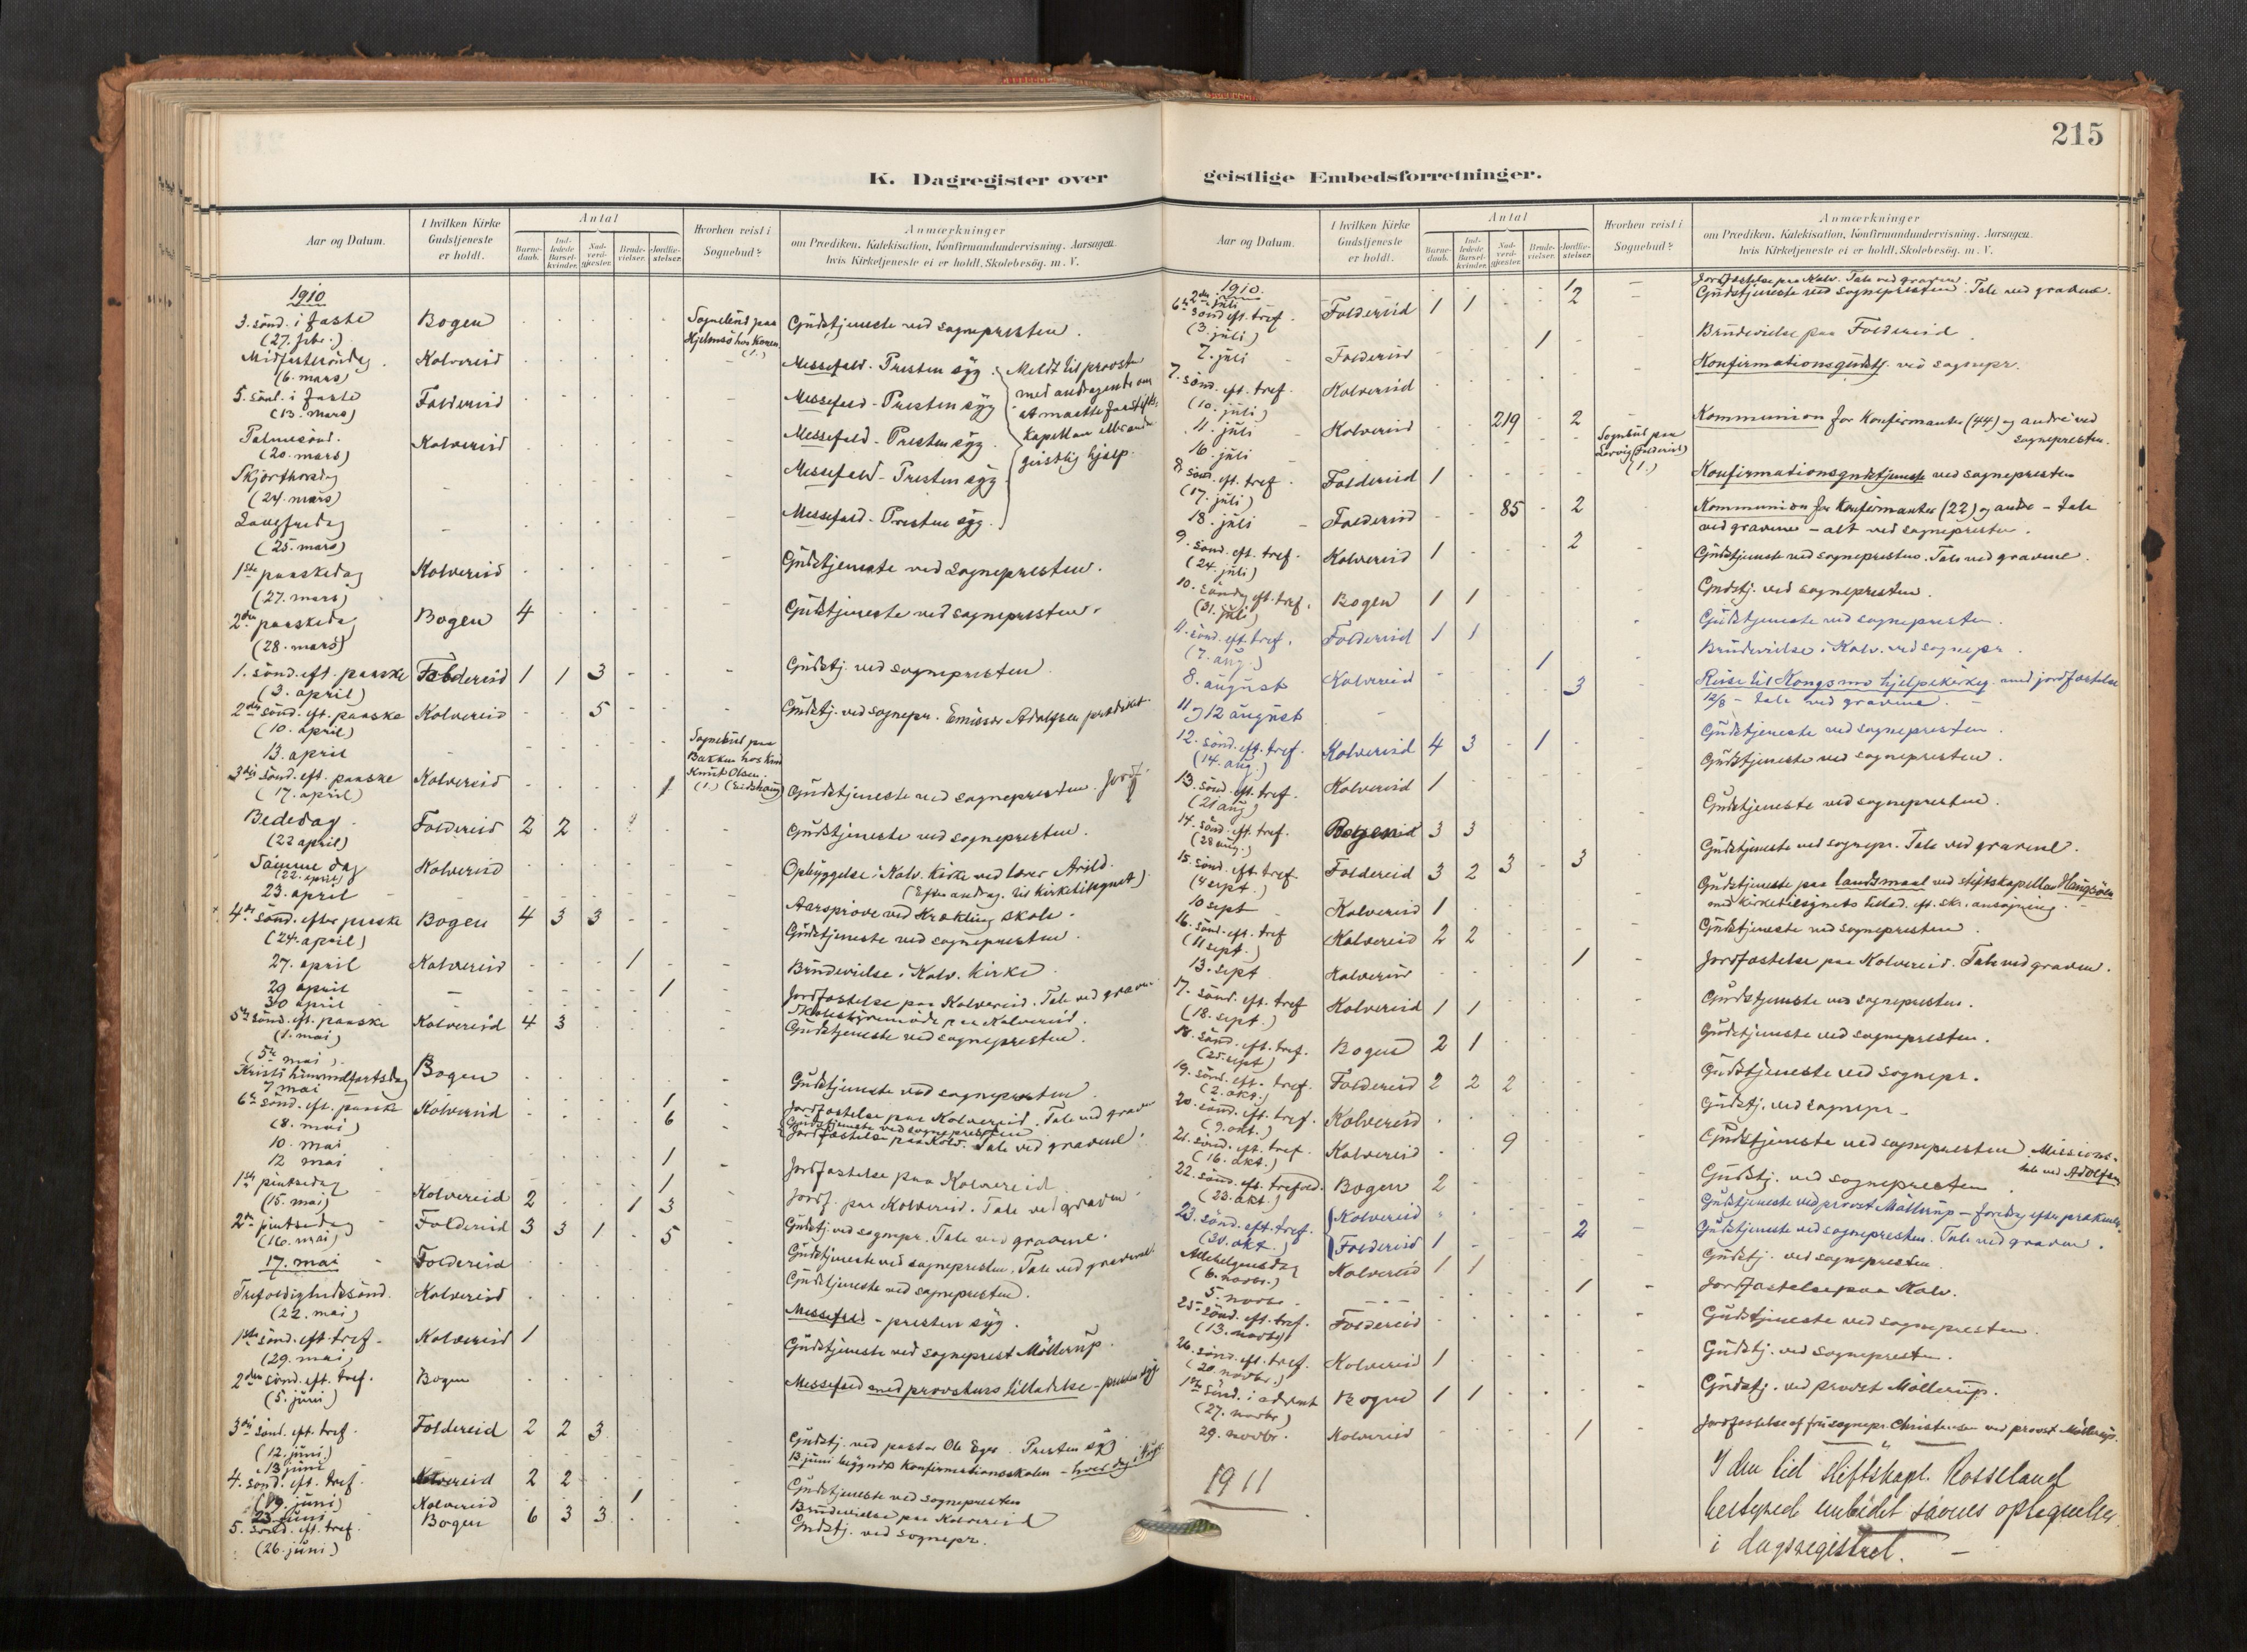 215
K. Dagregister over geistlige Embedsforretninger.
Aar og Datum. I hvilken Kirke Gudstjeneste er holdt. Antal Barnedaab. Indledede Barselkvinder. Nadverdgjester. Brudevielser. Jordfæstelser. Hvorhen reist i Sognebud? Anmærkninger om Prædiken, Katekisation, Konfirmandundervisning, Aarsagen hvis Kirketjeneste ei er holdt, Skolebesøg. m. V.
1910
3. sönd. i faste Bogen - - - - - Sognebud paa Gudstjeneste ved sognepresten.
(27. febr.) Hjelmsö hos Karen (1.)
Midfastesöndag Kolvereid - - - - - - Messefald - Presten syg. Meldt til provsten
(6. mars) med andragende om
5. sönd. i faste Foldereid - - - - - Messefald - Presten syg at maatte faa stifts-
(13. mars) kapellan
Palmesönd. Kolvereid - - - - - Messefald - Presten syg. geistlig hjælp.
(20. mars)
Skjærthorsdag - - - - - - Messefald - Presten syg
(24. mars)
Langfredag - - - - - - Messefald - Presten syg.
(25. mars)
1ste paaskedag Kolvereid - - - - - - Gudstjeneste ved sognepresten.
(27. mars)
2den paaskedag Bogen 4 - - - - - Gudstjeneste ved sognepresten.
(28. mars)
1. sönd. eft. paaske Foldereid 1 1 3 - - - Gudstj. ved sognepresten
(3. april)
2den sönd. eft. paaske Kolvereid - - 5 - - - Gudstj. ved sognepr. Emissær Adolfsen prædiket.
(10. april)
13. april - - - - - - Sognebud paa
Bakken hos
3die sönd. eft. paaske Kolvereid - - - - 1 Knut Olsen. (1.) Gudstjeneste ved sognepresten. Jordf.
(17. april)
Bededag. Foldereid 2 2 - - - - Gudstjeneste ved sognepresten.
(22 april)
Samme dag Kolvereid - - - - - - Opbyggelse i Kolv. Kirke ved lærer Arild.
(22. april) (Efter andrag. til kirketilsynet)
23. april - - - - - - Aarspröve ved Krækling skole.
4de sönd. efter paaske Bogen 4 3 3 - - - Gudstjeneste ved sognepresten.
(24. april)
27. april Kolvereid - - - 1 - - Brudevielse i Kolv. Kirke
29 april - - - - - 1 - Jordfæstelse paa Kolvereid. Tale ved graven
30 april Skolestyremöde paa Kolvereid.
5te sönd. eft. paaske Kolvereid 4 3 - - - - Gudstjeneste ved sognepresten.
(1. mai)
(5te mai)
Kristi himmelfartsdag Bogen - - - - - - Gudstjeneste ved sognepresten
7 mai 1 Jordfæstelse paa Kolvereid. Tale ved graven
6te sönd. eft. paaske Kolvereid - - - - 6 Gudstjeneste ved sognepresten
(8. mai) Jordfæstelse paa Kolv. Tale ved gravene.
10. mai - - - - 1 - Jordfæstelse paa Kolvereid
12 mai - - - - 1 Jordf. paa Kolvereid. Tale ved grav
1ste pintsedag Kolvereid 2 - - 1 3 Gudstj. ved sognepr. Tale ved gravene.
(15. mai)
2den pintsedag Foldereid 3 3 1 - 5 Gudstjeneste ved sognepresten. Tale ved gravene.
(16. mai)
17. mai Foldereid - - - - - Gudstjeneste ved sognepresten.
Trefoldighedssönd. Kolvereid - - - - - Messefald - presten syg.
(22. mai)
1ste sönd. eft. tref. Kolvereid 1 Gudstjeneste ved sogneprest Möllerup.
(29. mai)
2den sönd. eft. tref. Bogen - - - - - Messefald med provstens tilladelse - presten syg
(5. juni)
3die sönd. eft. tref. Foldereid 2 2 3 Gudstj. ved pastor Ole Eger. Presten syg
(12. juni)
13 juni - - - - 13 juni begyndte konfirmationsskolen - hver dag i
4. sönd. eft. tref. Kolvereid 2 2 - - - Gudstjeneste ved sognepresten
(19. juni)
23 juni Kolvereid 1 - Brudevielse paa Kolvereid
5. sönd. eft. tref. Bogen 6 3 3 - - - Gudstj. ved sognepr.
(26. juni)
Aar og Datum. I hvilken Kirke Gudstjeneste er holdt. Antal Barnedaab. Indledede Barselkvinder. Nadverdgjester. Brudevielser. Jordfæstelser. Hvorhen reist i Sognebud? Anmærkninger om Prædiken, Katekisation, Konfirmandundervisning, Aarsagen hvis Kirketjeneste ei er holdt, Skolebesøg. m. V.
1910.
2den juli 1 - Jordfæstelse paa Kolv. Tale ved graven.
6te sönd eft. tref. Foldereid 1 1 - - 2 - Gudstjeneste ved sognepresten. Tale ved gravene.
(3. juli)
7. juli Foldereid - - - 1 - Brudevielse paa Foldereid
7. sönd. eft. tref. Kolvereid - - - - - - Konfirmationsgudstj. ved sognepr.
(10. juli)
11. juli Kolvereid - - 219 - 2 - Kommunion for konfirmanter (44) og andre ved sognepresten.
16. juli - - - - - Sognebud paa
Lervig (Foldereid) (1.)
8. sönd. eft. tref. Foldereid 1 Konfirmationsgudstjeneste ved sognepresten
(17. juli)
18. juli Foldereid - - 85 - 2 - Kommunion for konfirmanter (22) og andre - tale
ved gravene - alt ved sognepresten.
9. sönd. eft. tref. Kolvereid 1 - - - 2 - Gudstjeneste ved sognepresten. Tale ved gravene.
(24. juli)
10. söndag eft. tref. Bogen 1 1 - - - - Gudstj. ved sognepresten.
(31. juli)
11. sönd. eft. tref. Foldereid 1 1 - - - - Gudstjeneste ved sognepresten.
(7. aug.)
8. august Kolvereid - - - 1 - Brudevielse i Kolv. ved sognepr.
11 og 12 august - - - - - 3 - Reise til Kongsmo hjelpekirkeg. med jordfæstelse
12/8 - tale ved gravene. -
12. sönd. eft. tref. Kolvereid 4 3 - 1 - - Gudstjeneste ved sognepresten.
(14. aug.)
13. sönd. eft. tref. Kolvereid 1 Gudstjeneste ved sognepresten.
(21 aug)
14. sönd. eft. tref. Bogen 3 3 Gudstjeneste ved sognepresten.
(28 aug.)
15. sönd. eft. tref. Foldereid 3 2 3 - 3 Gudstjeneste ved sognepr. Tale ved gravene.
(4 sept.)
10 sept Kolvereid 1 - Gudstjeneste paa landsmaal ved stiftskapellan Haugsöen
med kirketilsynets tillad. eft. skr. ansögning. -
16. sönd. eft. tref Kolvereid 2 2 - - - - Gudstjeneste ved sognepresten
(11 sept.)
13. sept Kolvereid - - - - 1 Jordfæstelse paa Kolvereid. Tale ved graven.
17. sönd. eft. tref Kolvereid 1 1 - Gudstjeneste ved sognepresten.
(18. sept.)
18. sönd. eft. tref. Bogen 2 1 - Gudstjeneste ved sognepresten.
(25. sept)
19. sönd. eft. tref. Foldereid 2 2 2 - - - Gudstjeneste ved sognepr.
(2. okt.)
20. sönd. eft. tref. Kolvereid - - - - - - Gudstj. ved sognepr -
(9. okt.)
21. sönd. eft. tref. Kolvereid - - 9 - - - Gudstjeneste ved sognepresten. Missions-
(16. okt.) tale ved Adolfsen
22. sönd. eft. trefold. Bogen 2 - - - - Gudstj. ved sognepresten
(23. okt.)
23. sönd. eft. tref. Kolvereid - - - - - Gudstjeneste ved provst Möllerup - foredrag efter prækenen.
(30. okt.) Foldereid 1 - - - 2 - Gudstjeneste ved sognepresten. Tale ved graven.
Allehelgensdag Kolvereid 1 1 - - - Gudstj. ved sognepresten.
(6. novbr.)
5. novbr. - - - - - 1 - Jordfæstelse paa Kolv.
25. sönd. eft. tref. Foldereid - - - - - - Gudstjeneste ved sognepresten.
(13. novbr)
26. sönd. eft. tref. Kolvereid 1 - - - - Gudstj. ved sognepresten.
(20. novbr.)
1ste sönd. i advent Bogen 1 1 - - - Gudstj. ved provst Möllerup.
(27. novbr.)
29. novbr. Kolvereid 1 - Jordfæstelse af fru sognepr. Christensen ved provst Möllerup.
1911
I den tid stiftskapl. Rosseland
bestyred embedet savnes optegnelser
i dagsregistret. -